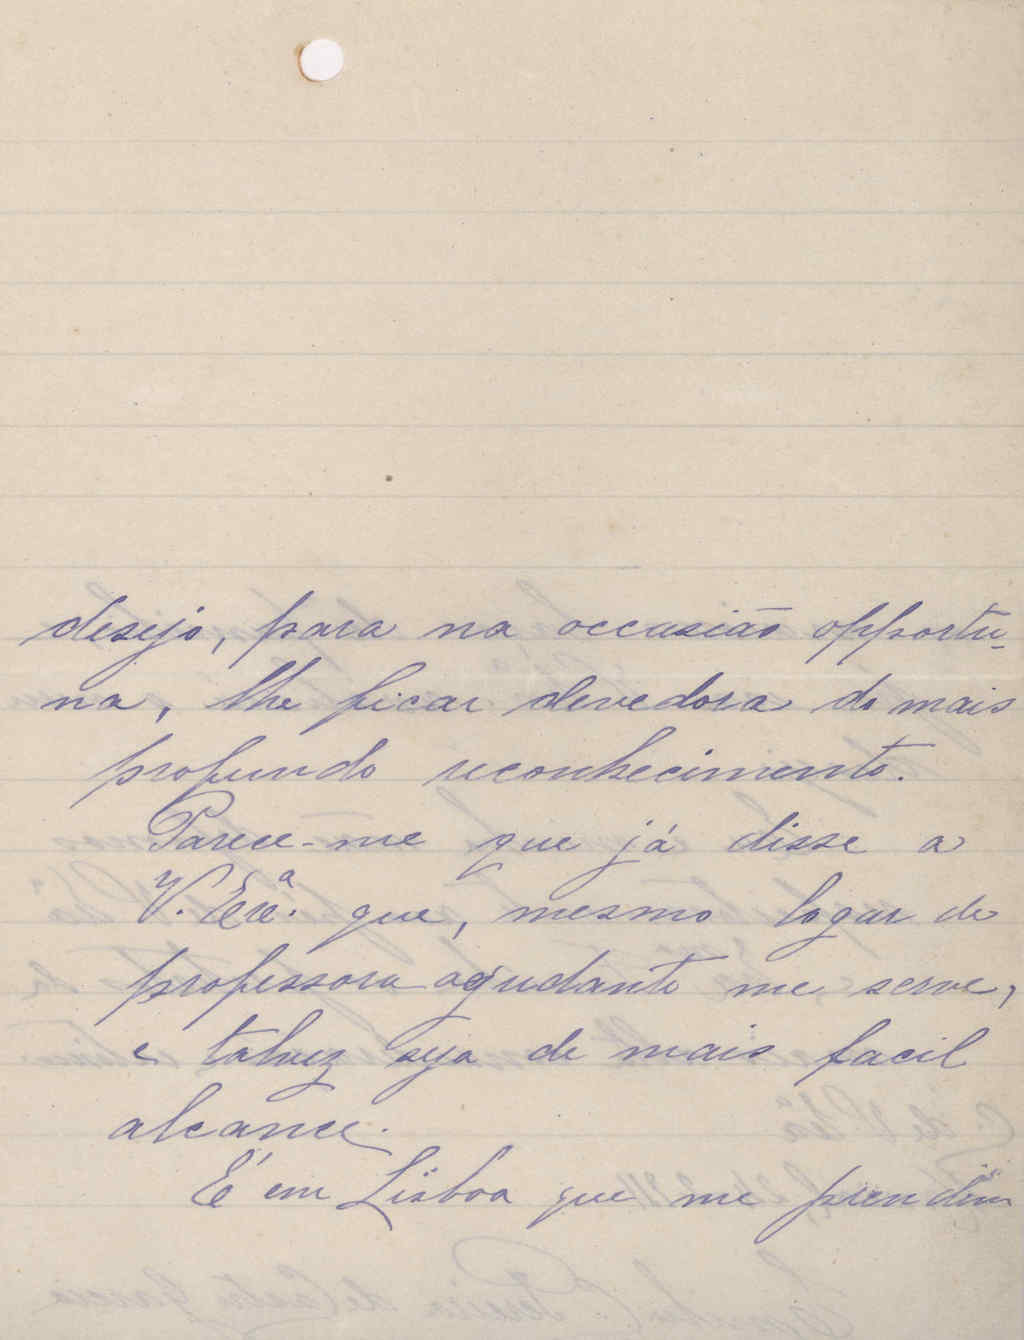 desejo, para na occasião opportu-
na, lhe ficar devedora do mais
profundo reconhecimento.
Parece-me que já disse a
V. Exª. que, mesmo logar de
professora ajudante me serve,
e talvez seja de mais facil
alcance.
É em Lisboa que me prendem